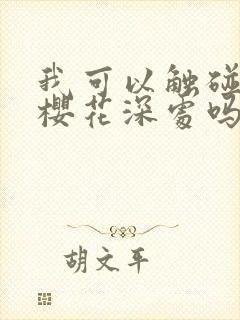 我可以触碰
樱花深处吗
胡文平